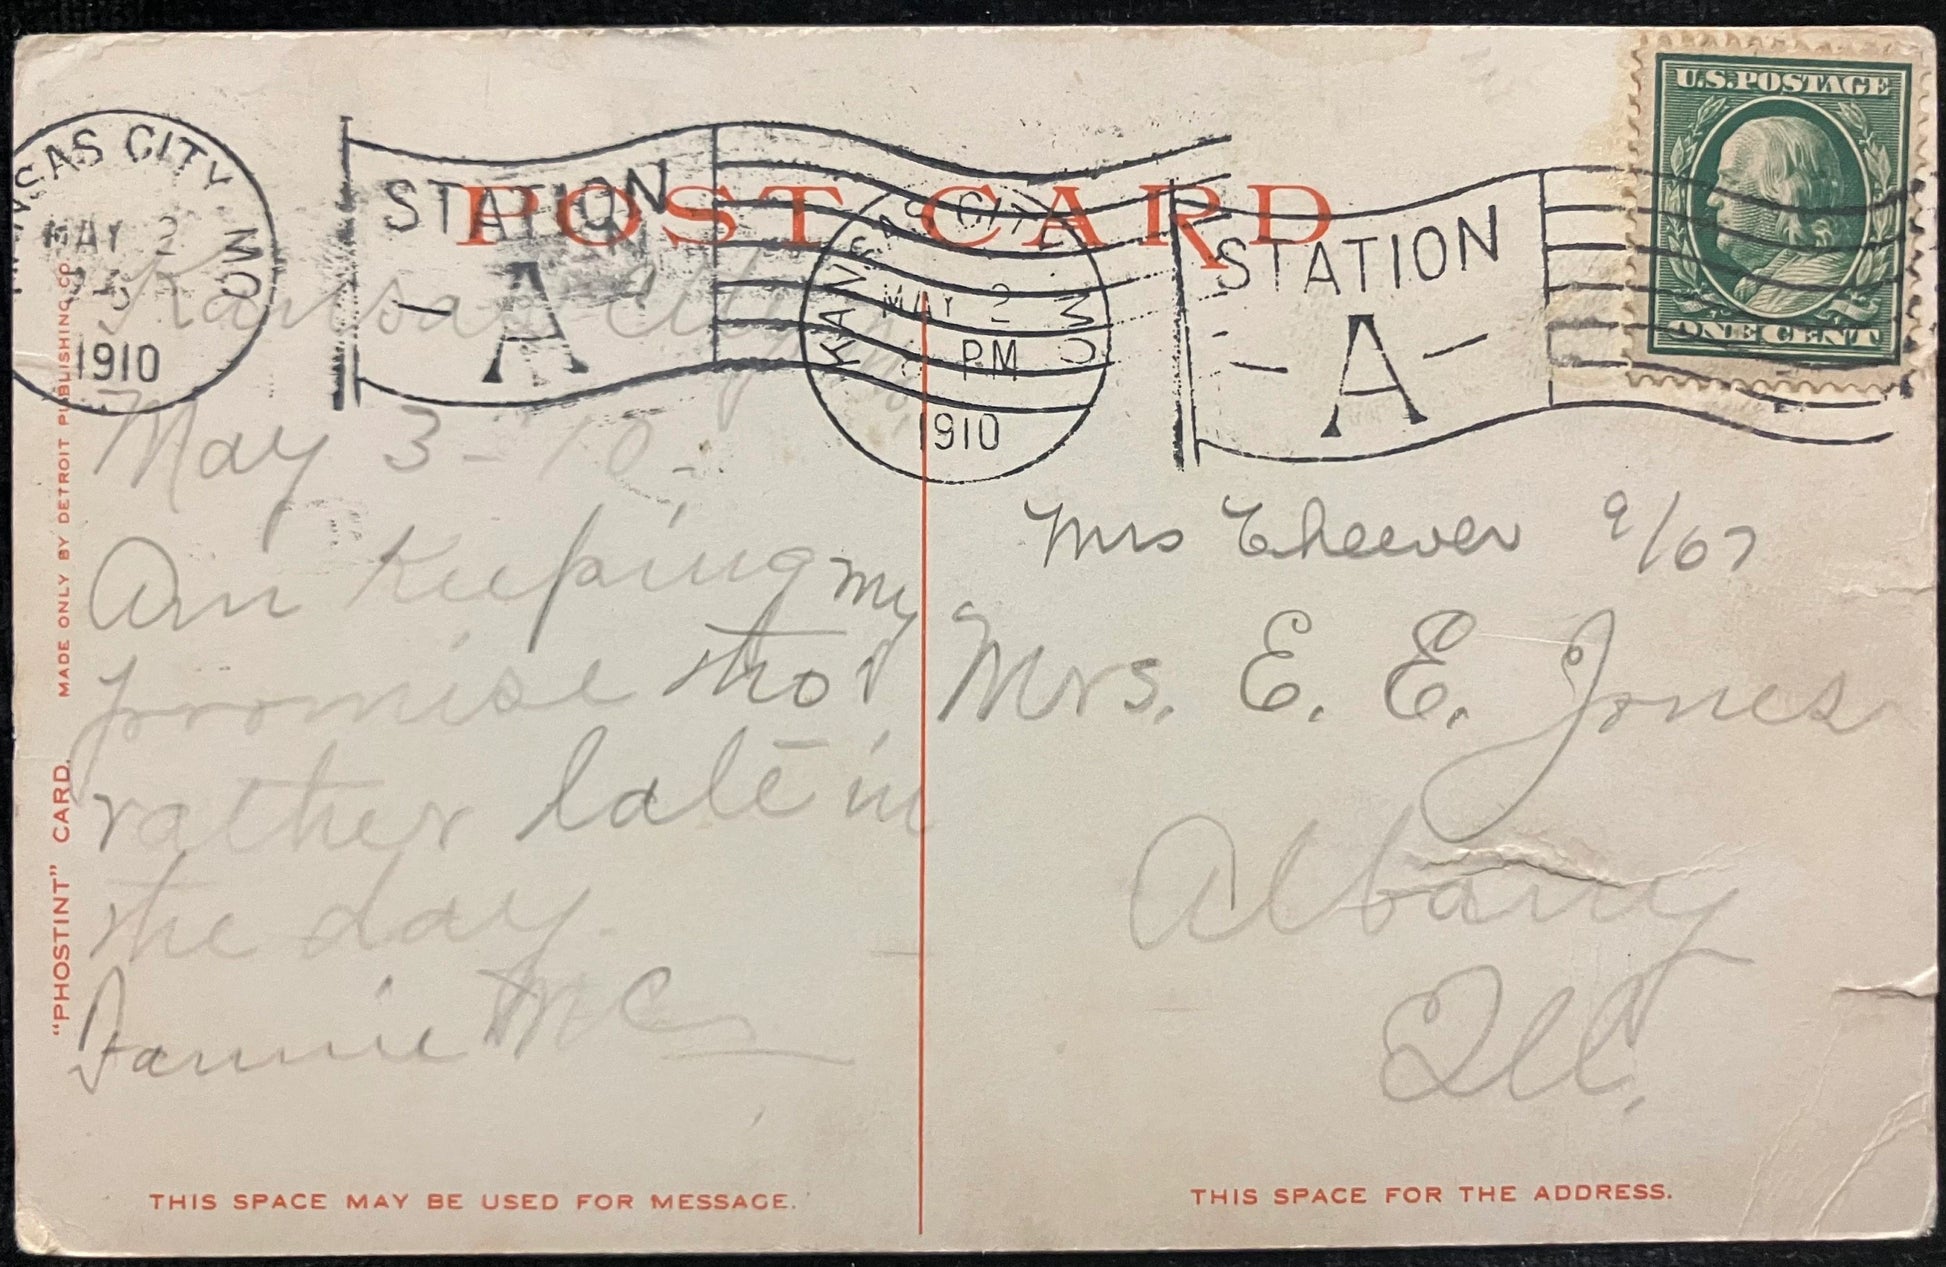 U.S. POSTAGE
ONE CENT
POST CARD
KANSAS CITY MO
MAY 2
1910
STATION
A
KANSAS CITY MO
MAY 2
PM
1910
STATION
A
Kansas City
May 3 - 10.
Am keeping my
promise tho'
rather late in
the day.
Fannie Mc
Mrs Cheever 9/67
Mrs. E. E. Jones
Albany
Ill.
"PHOSTINT" CARD. MADE ONLY BY DETROIT PUBLISHING CO.
THIS SPACE MAY BE USED FOR MESSAGE.
THIS SPACE FOR THE ADDRESS.